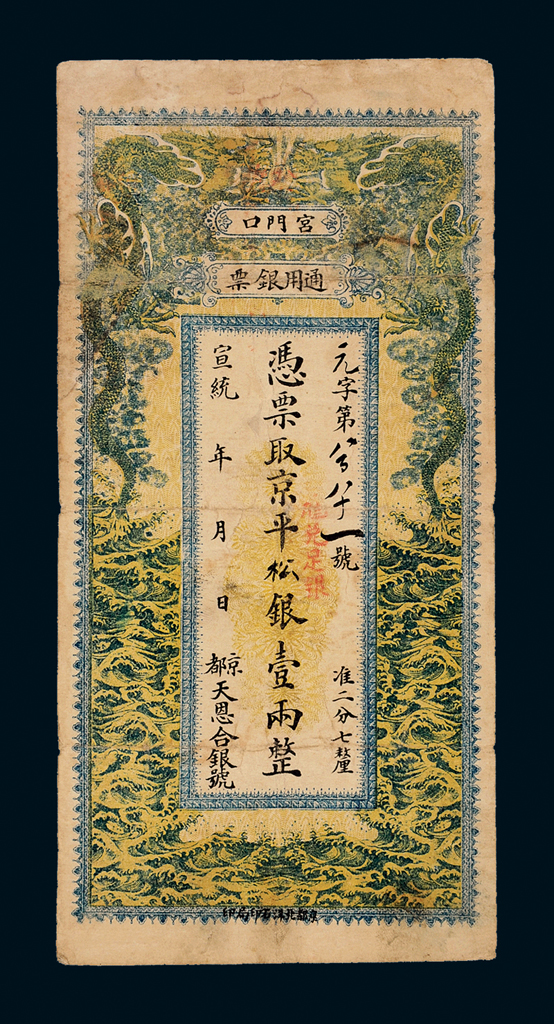 宮門口
通用銀票
元字第 號
准二分七釐
足銀
憑票取京平松銀壹兩整
宣統 年 月 日
京都天恩合銀號